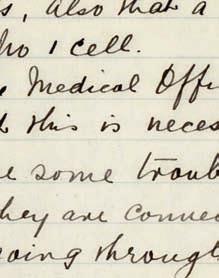 s, also that a
who 1 cell.
, Medical Offi
d this is neces
e some troub
they are connec
going through